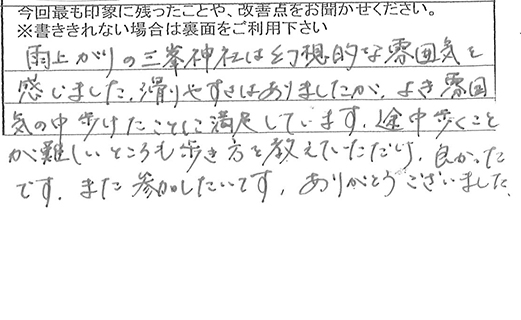 今回最も印象に残ったことや、改善点をお聞かせください。
※書ききれない場合は裏面をご利用下さい
雨上がりの三峯神社は幻想的な雰囲気を
感じました。滑りやすさはありましたが、よき雰囲
気の中歩けたことに満足しています。途中歩くこと
が難しいところも歩き方を教えていただけ、良かった
です。また参加したいです。ありがとうございました。